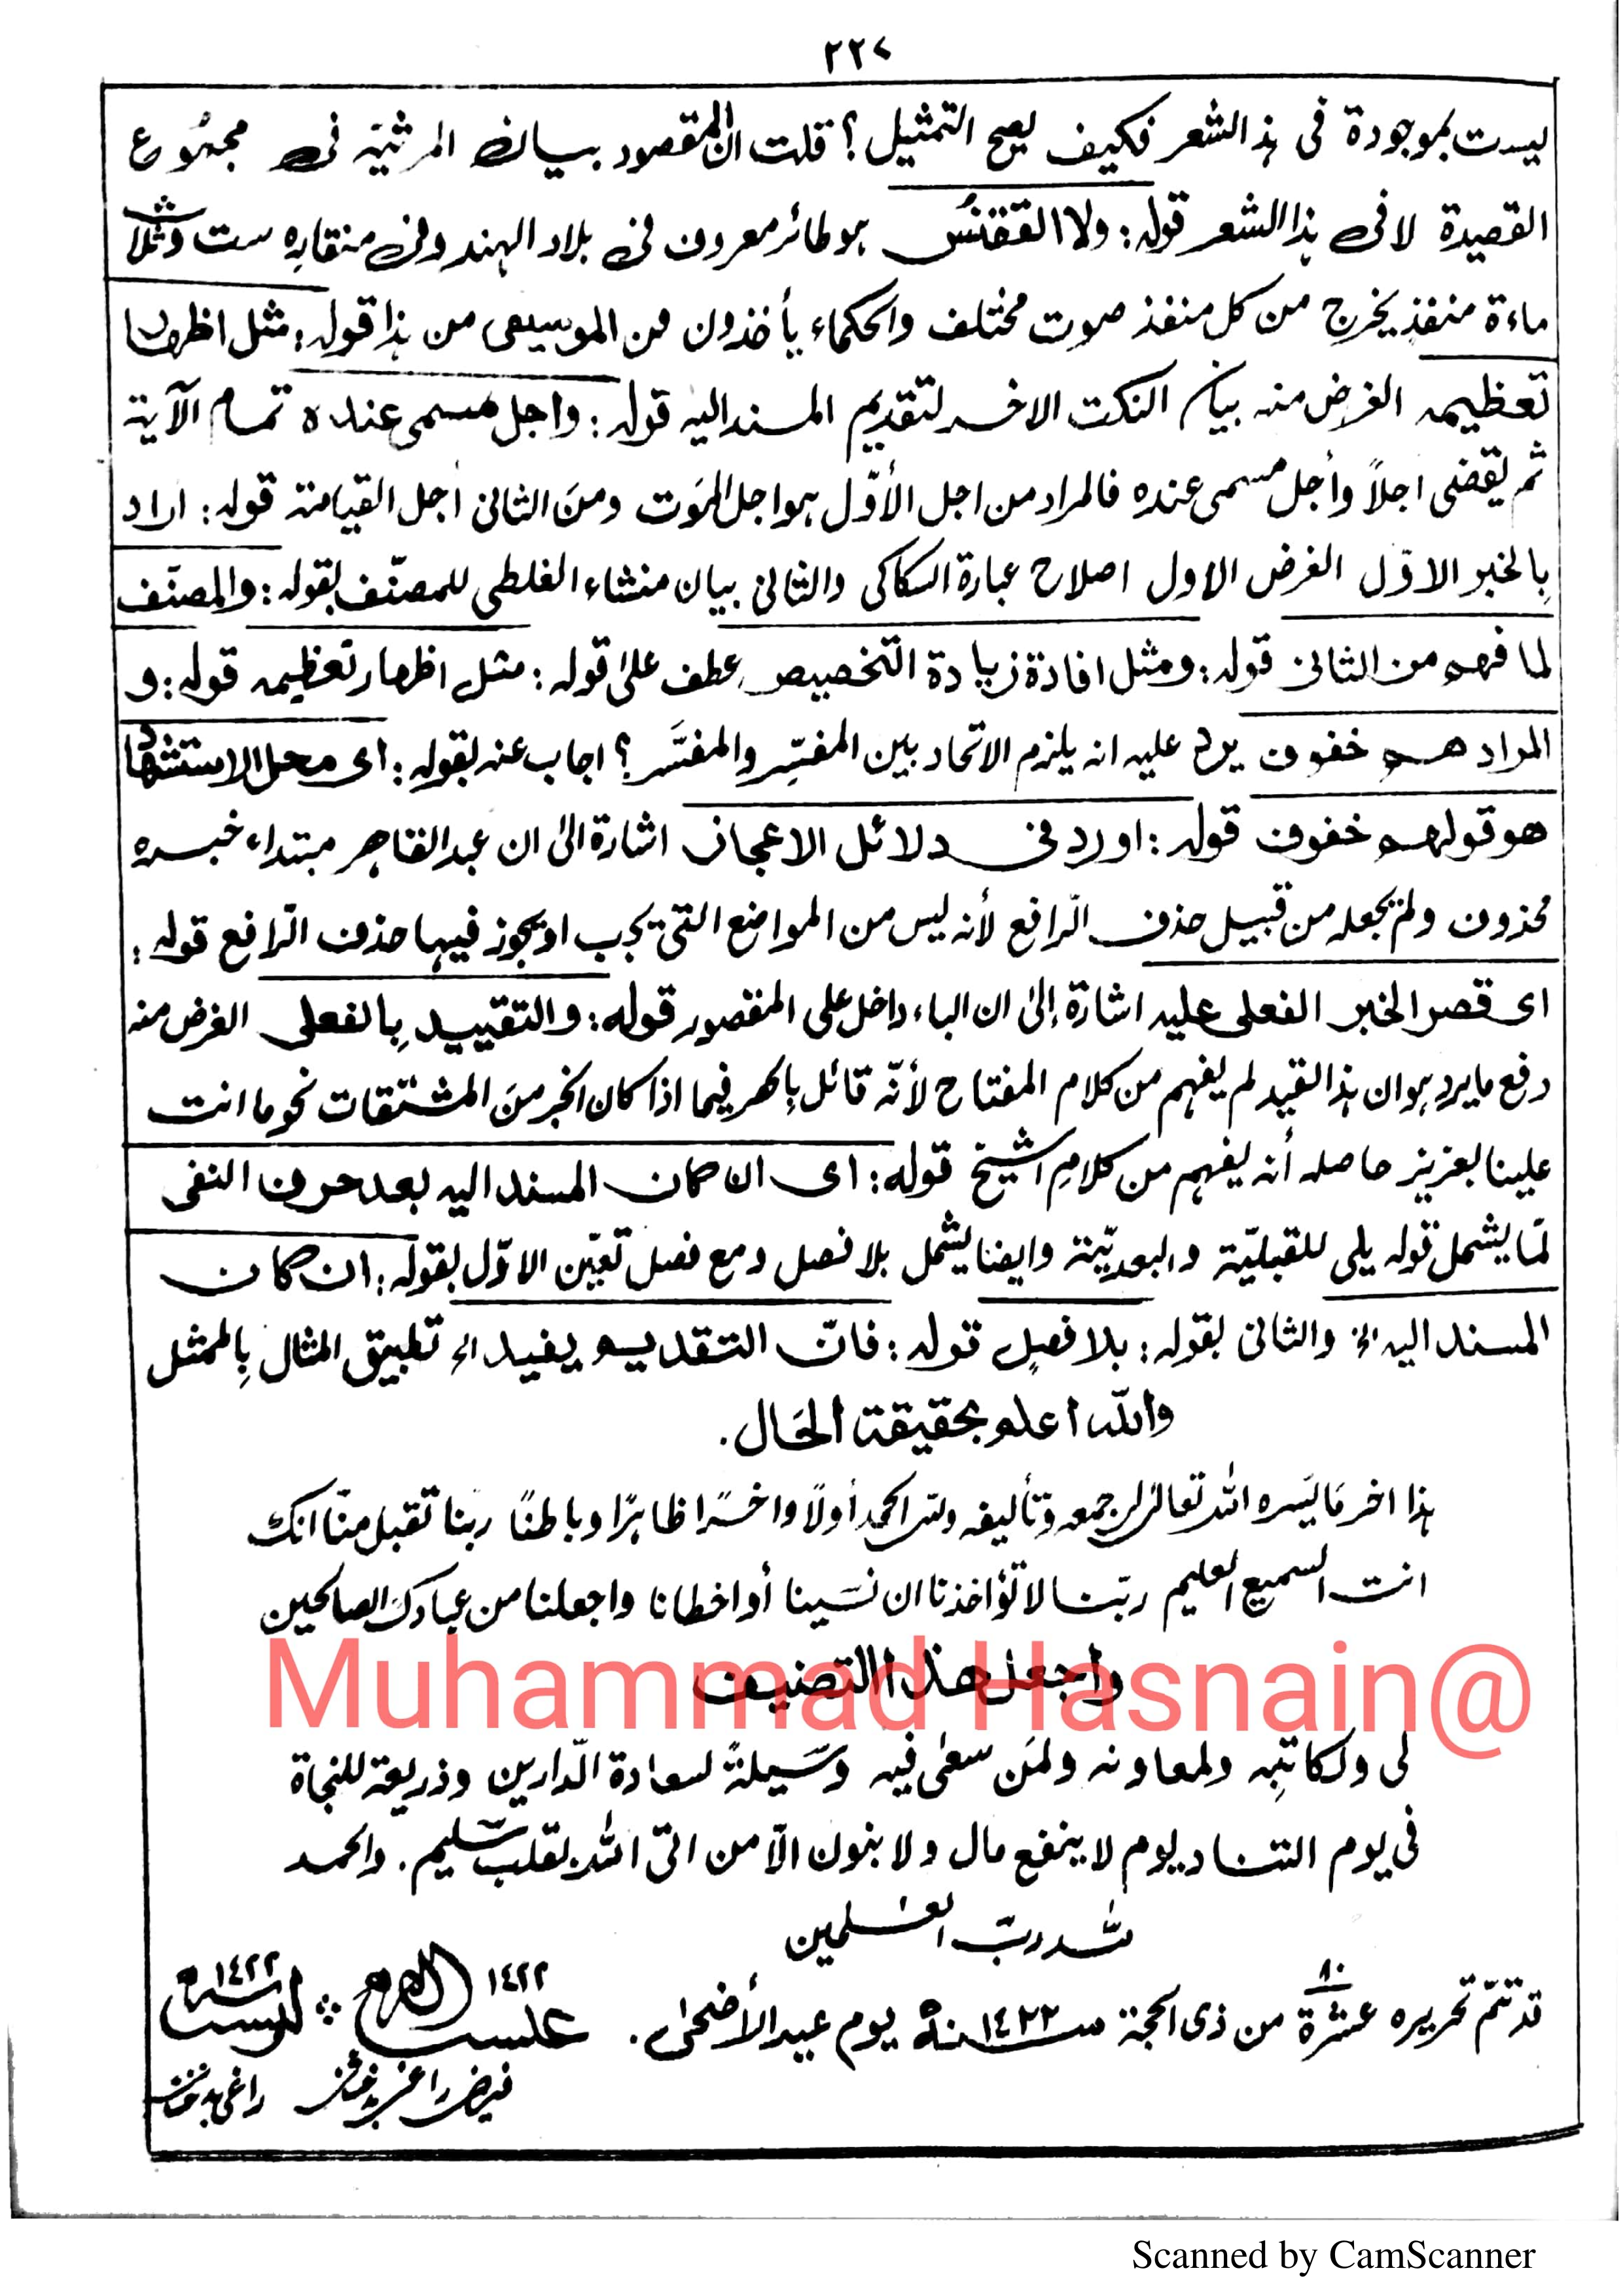 ٢٢٧
ليست بموجودة فى هذا الشعر فكيف يصح التمثيل؟ قلت ان المقصود بيان المرثية فى مجموع
القصيدة لا فى هذا الشعر قوله: ولا الققنس هو طائر معروف فى بلاد الهند وفى منقاره ست وثلا
ماءة منفذ يخرج من كل منفذ صوت مختلف والحكماء يأخذون من الموسيعى من هذا قوله: مثل اظهار
تعظيمه الغرض منه بيان النكت الاخر لتقديم المسند اليه قوله: واجل مسمى عنده تمام الآية
ثم يقضى اجلاً وأجل مسمى عنده فالمراد من اجل الأوّل هو اجل المَوت ومنَ الثانى أجل القيامة قوله: اراد
بِالخبر الاوّل الغرض الاول اصلاح عبارة السكاكى والثانى بيان منشاء الغلطى للمصنّف بقوله: والمصنّف
لما فهم من الثانى قوله: ومثل افادة زيادة التخصيص عطف علىٰ قوله: مثل اظهار تعظيمه قوله: و
المراد هم خفوف يرد عليه انه يلزم الاتحاد بين المفسِّر والمفسَّر؟ اجاب عنه بقوله: اى محل الاستشهاد
هو قوله هم خفوف قوله: اورد فى دلائل الاعجاز اشارة الىٰ ان عبد القاهر مبتداء خبره
محذوف ولم يجعله من قبيل حذف الرافع لأنه ليس من المواضع التى يجب او يجوز فيها حذف الرافع قوله:
اى قصر الخبر الفعلى عليه اشارة إلىٰ ان الباء داخل على المقصور قوله: والتقييد بِالفعلى الغرض منه
دفع ما يرد هو ان هذا القيد لم يفهم من كلام المفتاح لأنّه قائل بِالحصر فيما اذا كان الخبر منَ المشتقات نحو ما انت
علينا بعزيز حاصله أنه يفهم من كلامِ الشيخ قوله: اى ان كان المسند اليه بعد حرف النفى
لمّا يشمل قوله يلى للقبليّة والبعديّة وايضا يشمل بلا فصل ومع فصل تعيّن الاوّل بقوله: ان كان
المسند اليه الخ والثانى بقوله: بلا فصلٍ قوله: فانّ التقديم يفيد الخ تطبيق المثال بِالممثل
والله اعلم بحقيقة الحَال.
هذا اخر مَا يسّره الله تعالىٰ لى جمعه وتأليفه ولله الحمد أولاً واخرًا ظاهرًا وباطنًا ربنا تقبل منّا انك
انت السميع العليم ربّنا لا تؤاخذنا ان نسَينا أو اخطانا واجعلنا من عبادك الصالحين
واجعل هذا التصنيف
Muhammad Hasnain@
لى ولكاتبِه ولمعاونه ولمَن سعىٰ فيه وسَيلةً لسعادة الدّارين وذريعة للنجاة
فى يوم التناد يوم لا ينفع مال ولا بنون الاّ من اتى الله بقلب سليم. والحمد
لله ربّ العٰلمين
قد تمّ تحريره عشرة ١٠ من ذى الحجة سنه ١٤٢٢ه يوم عيد الأضحىٰ.
١٤٢٢
١٤٢٢
Scanned by CamScanner